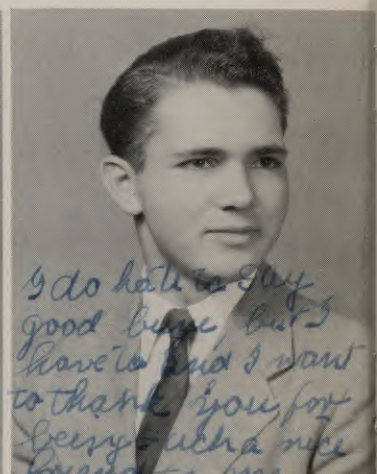 I do hate to Say
good buye but I
have to and I want
to thank you for
beeny such a nice
friend